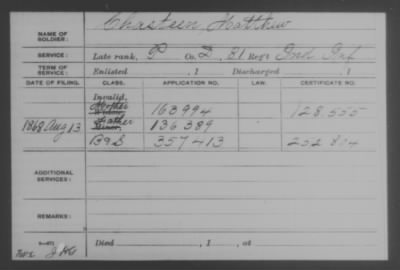 NAME OF SOLDIER: Chasteen, Matthew
SERVICE: Late rank, P Co. D, 81 Reg't Ind Inf
TERM OF SERVICE: Enlisted , 1 Discharged , 1
DATE OF FILING. CLASS. APPLICATION NO. LAW. CERTIFICATE NO.
Invalid,
Mother
Widow, 163994 128.555
1868 Aug 13 Father
Minor, 136389
B9S 357413 252.804
ADDITIONAL SERVICES:
REMARKS:
Died , 1 , at